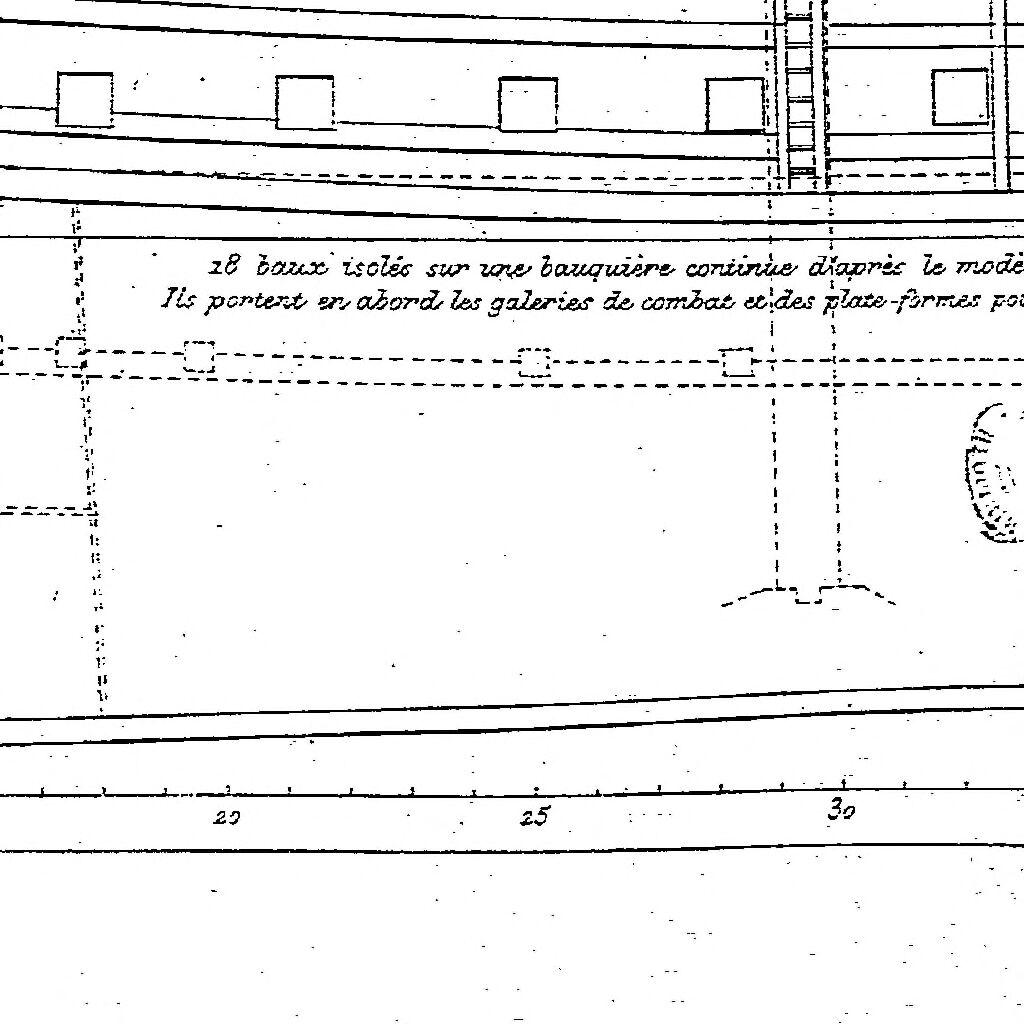 18 baux isolés sur une bauquière continue d'après le modè
Ils portent en abord les galeries de combat et des plate-formes pou
20 25 30